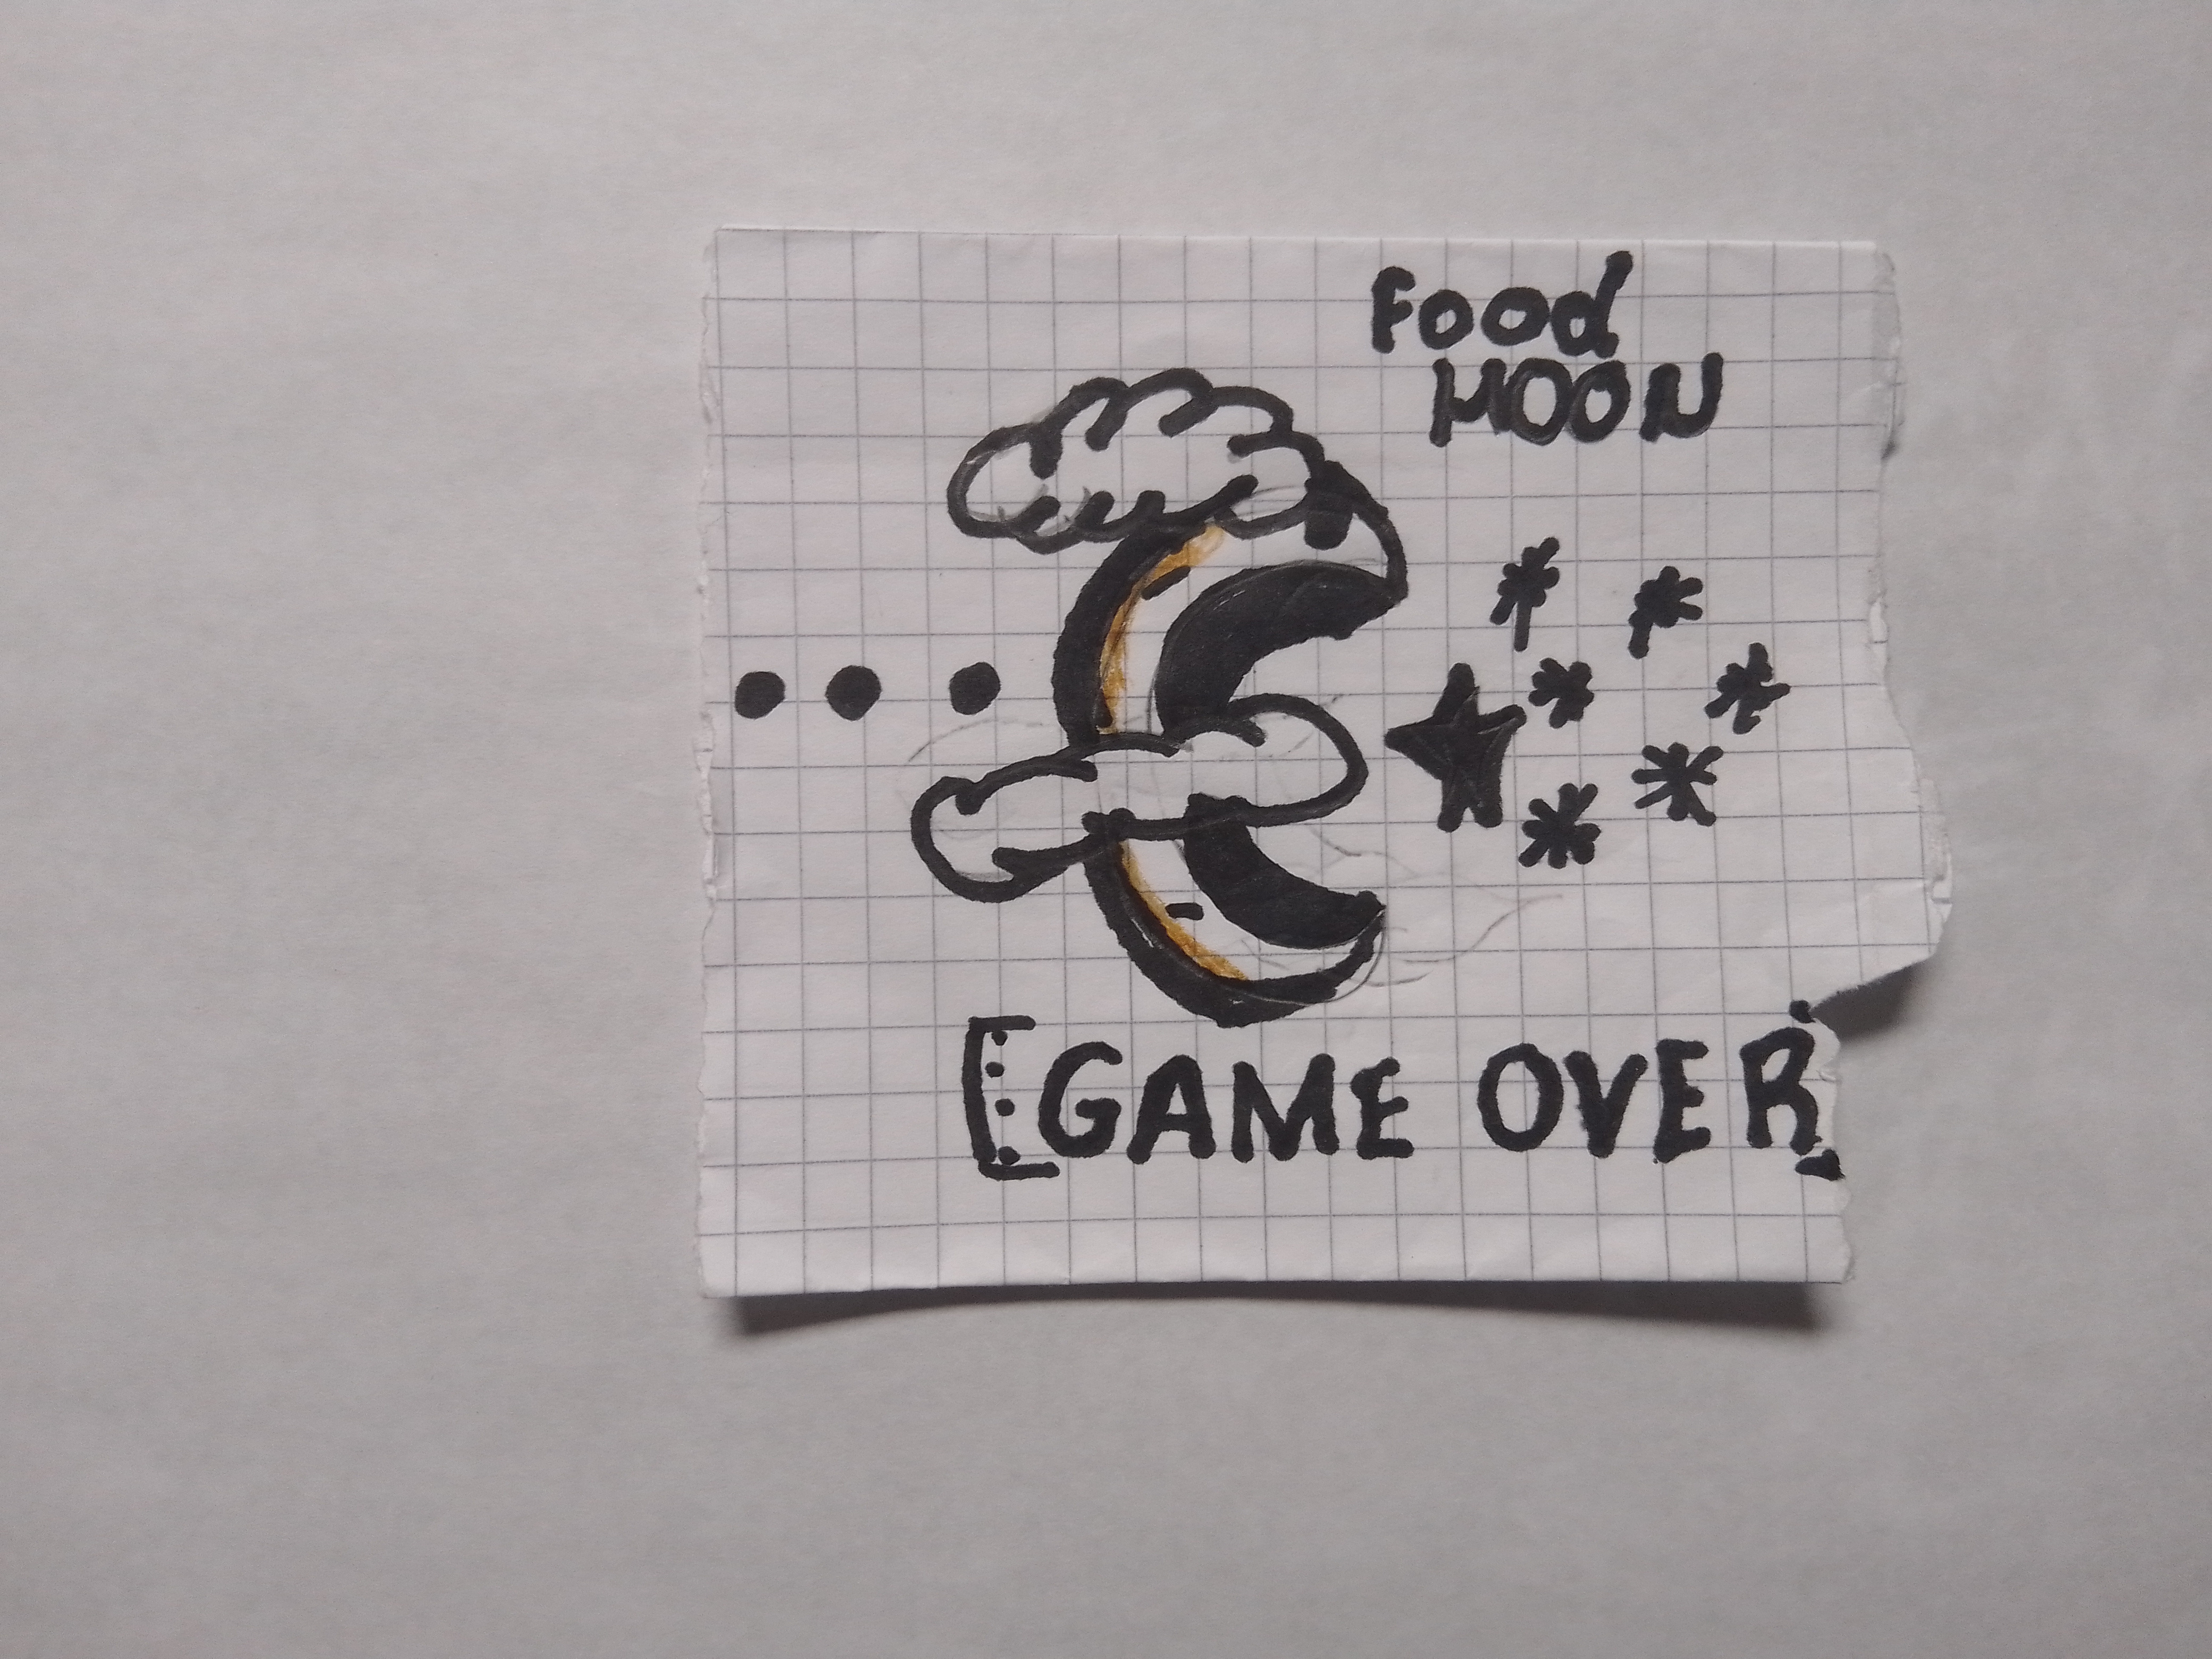 Food
MOON
GAME OVER